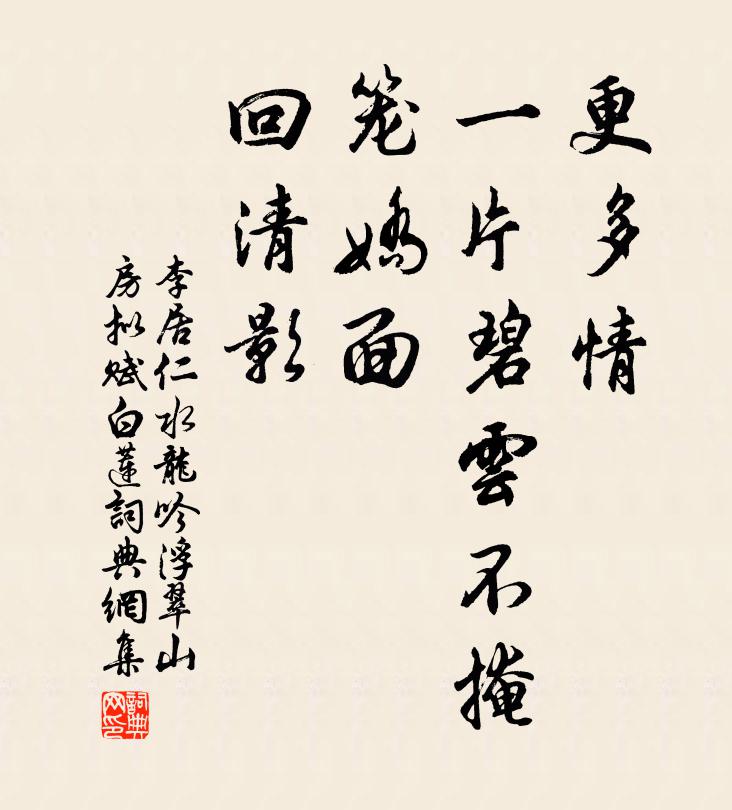 更多情
一片碧雲不掩
笼嬌面
回清影
李居仁水龍吟浮翠山
房拟赋白蓮詞典網集
詞典
网印